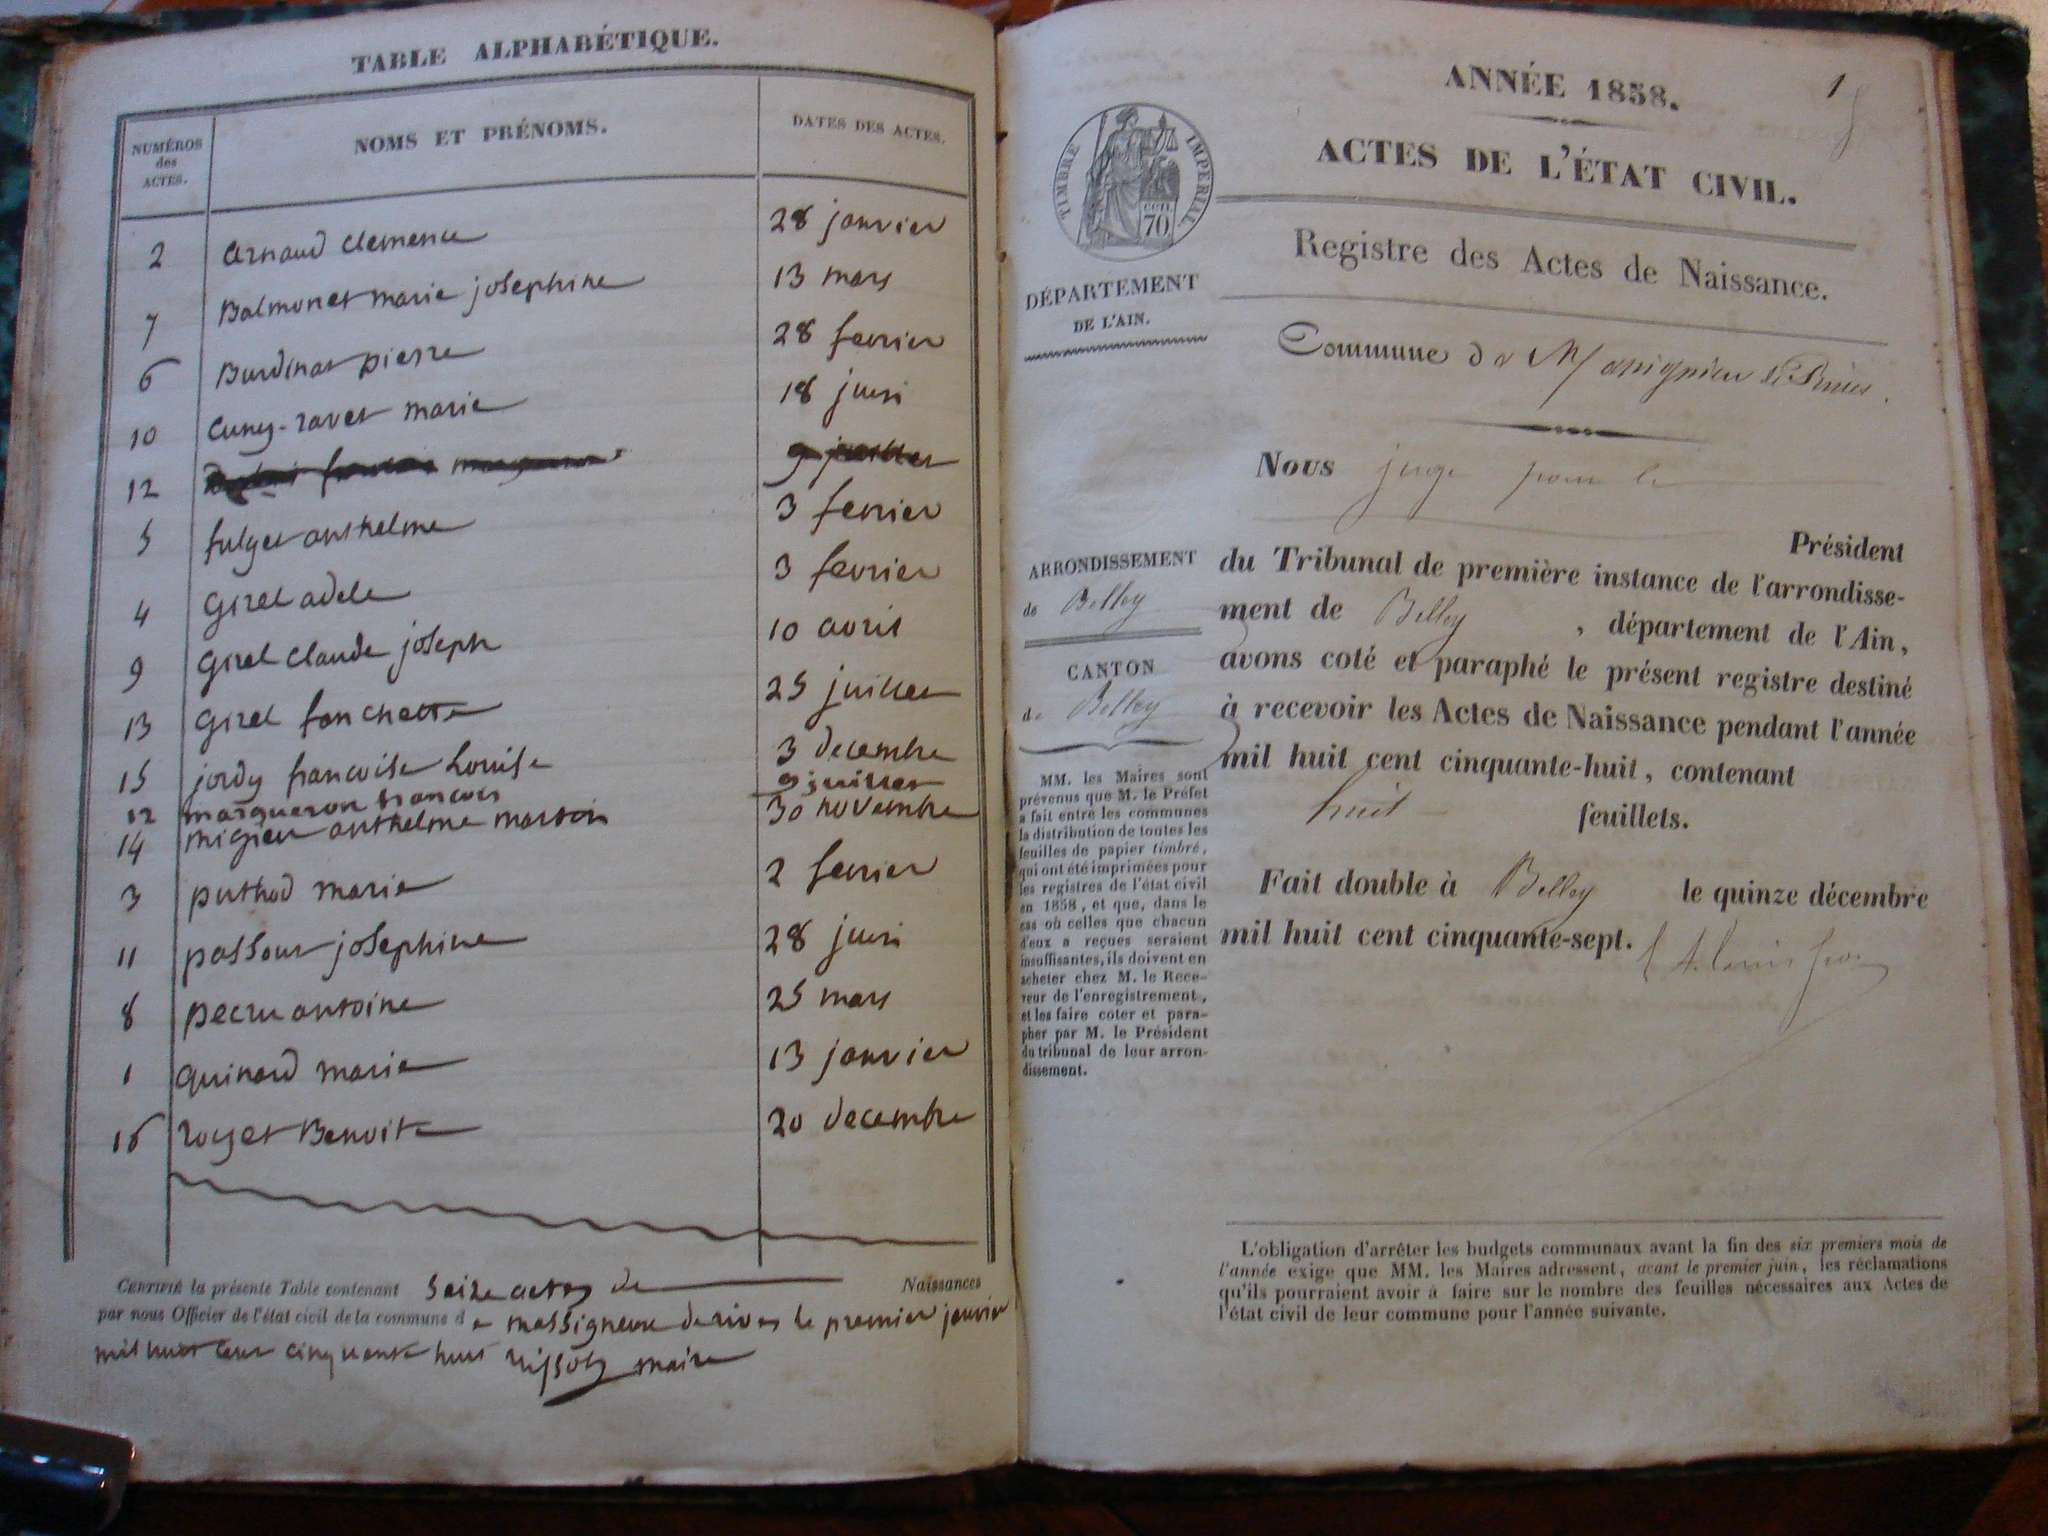 TABLE ALPHABÉTIQUE.
NUMÉROS
des
ACTES.
NOMS ET PRÉNOMS.
DATES DES ACTES.
2 Arnaud clemence 28 janvier
7 Balmonet marie josephine 13 mars
6 Burdinat pierre 28 fevrier
10 Cuny-ravet marie 18 juin
12 9 juillet
5 fulget anthelme 3 fevrier
4 Girel adele 3 fevrier
9 Girel claude joseph 10 avril
13 Girel fanchette 25 juillet
15 jordy francoise Louise 3 decembre
12 margueron francois 9 juillet
14 migieu anthelme martin 30 novembre
3 puthod marie 2 fevrier
11 passour josephine 28 juin
8 pecru antoine 25 mars
1 quinard marie 13 janvier
16 royet Benoite 20 decembre
CERTIFIÉ la présente Table contenant Seize actes de Naissances
par nous Officier de l'état civil de la commune de massigneux de rives le premier janvier
mil huit cent cinquante huit maire
ANNÉE 1858.
1
ACTES DE L'ÉTAT CIVIL.
TIMBRE IMPÉRIAL
CENT.
70
Registre des Actes de Naissance.
DÉPARTEMENT
DE L'AIN.
Commune de
Nous juge pour le
Président
ARRONDISSEMENT
de Belley
CANTON
de Belley
du Tribunal de première instance de l'arrondisse-
ment de Belley, département de l'Ain,
avons coté et paraphé le présent registre destiné
à recevoir les Actes de Naissance pendant l'année
mil huit cent cinquante-huit, contenant
huit feuillets.
Fait double à Belley le quinze décembre
mil huit cent cinquante-sept.
MM. les Maires sont
prévenus que M. le Préfet
a fait entre les communes
la distribution de toutes les
feuilles de papier timbré,
qui ont été imprimées pour
les registres de l'état civil
en 1858, et que, dans le
cas où celles que chacun
d'eux a reçues seraient
insuffisantes, ils doivent en
acheter chez M. le Rece-
veur de l'enregistrement,
et les faire coter et para-
pher par M. le Président
du tribunal de leur arron-
dissement.
L'obligation d'arrêter les budgets communaux avant la fin des six premiers mois de
l'année exige que MM. les Maires adressent, avant le premier juin, les réclamations
qu'ils pourraient avoir à faire sur le nombre des feuilles nécessaires aux Actes de
l'état civil de leur commune pour l'année suivante.